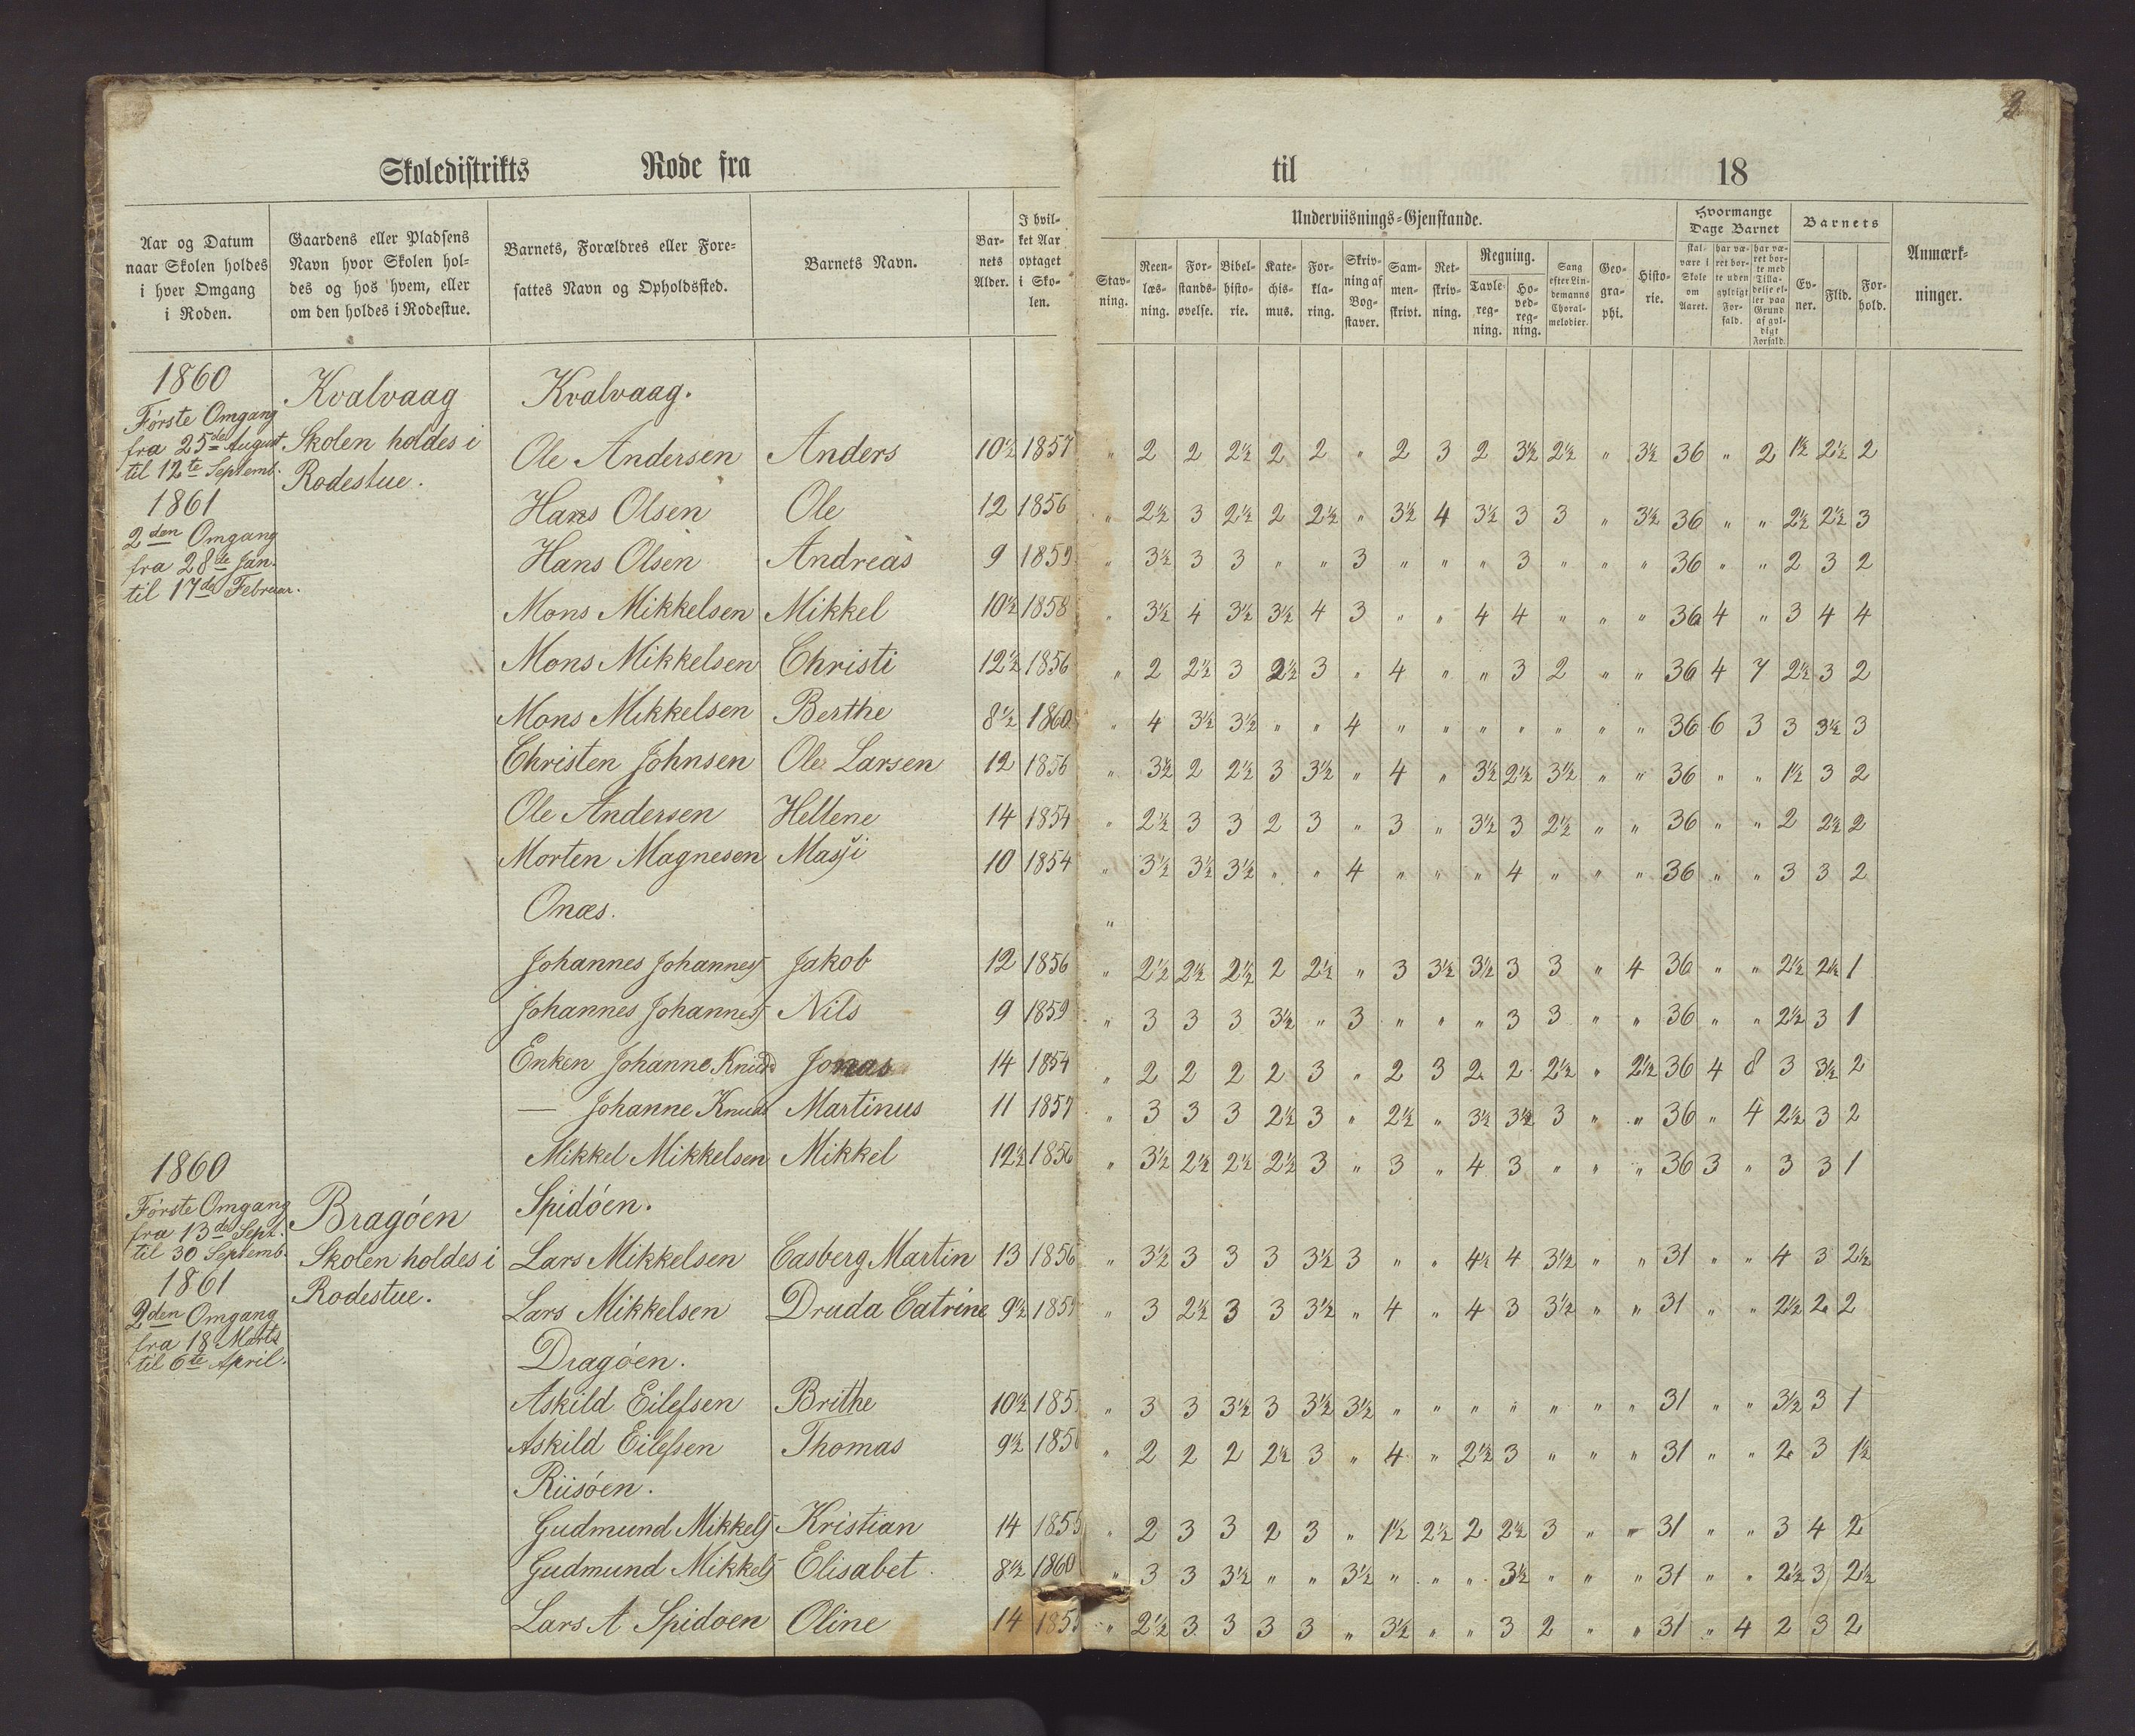 2
Skoledistrikts Rode fra til 18
Aar og Datum naar Skolen holdes i hver Omgang i Roden.
Gaardens eller Pladsens Navn hvor Skolen holdes og hos hvem, eller om den holdes i Rodestue.
Barnets, Forældres eller Forefattes Navn og Opholdssted.
Barnets Navn.
Barnets Alder.
I hvilket Aar optaget i Skolen.
Underviisnings-Gjenstande.
Stavning.
Reenlæsning.
Forstandsøvelse.
Bibelhistorie.
Katechismus.
Forklaring.
Skrivning af Bogstaver.
Sammenskrivt.
Retskrivning.
Regning.
Tavleregning.
Hovedregning.
Sang efter Lindemanns Choralmelodier.
Geographi.
Historie.
Hvormange Dage Barnet
skal være i Skole om Aaret.
har været borte uden gyldigt Forfald.
har været borte med Tilladelse eller paa Grund af gyldigt Forfald.
Barnets
Evner.
Flid.
Forhold.
Anmærkninger.
1860
Første Omgang
fra 25de August
til 12te Septemb.
1861
2den Omgang
fra 28de Jan.
til 17de Februar.
Kvalvaag
Skolen holdes i
Rodestue.
Kvalvaag.
Ole Andersen Anders 10½ 1857 " 2 2 2½ 2 2 " 2 3 2 3½ 2½ " 3½ 36 " 2 1½ 2½ 2
Hans Olsen Ole 12 1856 " 2½ 3 2½ 2 2½ " 3½ 4 3½ 3 3 " 3½ 36 " " 2½ 2½ 3
Hans Olsen Andreas 9 1859 " 3½ 3 3 " " 3 " " " 3 " " " 36 " " 2 3 2
Mons Mikkelsen Mikkel 10½ 1858 " 3½ 4 3½ 3½ 4 3 " " 4 4 " " " 36 4 " 3 4 4
Mons Mikkelsen Christi 12½ 1856 " 2 2½ 3 2½ 3 " 4 " " 3 2 " " 36 4 7 2½ 3 2
Mons Mikkelsen Berthe 8½ 1860 " 4 3½ 3½ " " 4 " " " " " " " 36 6 3 3 3½ 3
Christen Johnsen Ole Larsen 12 1856 " 3½ 2 2½ 3 3½ " 4 " 3½ 2½ 3½ " " 36 " " 1½ 3 2
Ole Andersen Hellene 14 1854 " 2½ 3 3 2 3 " 3 " 3½ 3 2½ " " 36 " " 2 2½ 2
Morten Magnesen Masji 10 1854 " 3½ 3½ 3½ " " 4 " " " 4 " " " 36 " " 3 3 2
Onæs. "
Johannes Johannes Jakob 12 1856 " 2½ 2½ 2½ 2 2½ " 3 3½ 3½ 3 3 " 4 36 " " 2½ 2½ 1
Johannes Johannes Nils 9 1859 " 3 3 3 3½ " 3 " " " 3 3 " " 36 " " 2½ 3 1
Enken Johanne Knuds Jonas 14 1854 " 2 2 2 2 3 " 2 3 2 2 2½ " 2½ 36 4 8 3 3½ 2
— Johanne Knuds Martinus 11 1857 " 3 3 3 2½ 3 " 2½ " 3½ 3½ 3 " " 36 " 4 2½ 3 2
Mikkel Mikkelsen Mikkel 12½ 1856 " 3½ 2½ 2½ 2½ 3 " 3 " 4 3 " " " 36 3 " 3 3 1
1860
Første Omgang
fra 13de Sept.
til 30 Septemb.
1861
2den Omgang
fra 18 Marts
til 6te April.
Bragøen
Skolen holdes i
Rodestue.
Spidøen.
Lars Mikkelsen Easberg Martin 13 1856 " 3½ 3 3 3 3½ 3 " " 4½ 4 3½ " " 31 " " 4 3 2½
Lars Mikkelsen Druda Catrine 9½ 185 " 3 2½ 3 3 3½ " 4 " 4 3 3½ " " 31 " " 2½ 2 2
Dragøen.
Askild Eilefsen Brithe 10½ 185 " 3 3 3½ 3 3½ 3½ " " " " " " " 31 " " 3½ 3 1
Askild Eilefsen Thomas 9½ 185 " 2 2 2 2½ 3 " 4 " 2½ 3 " " " 31 " " 2 3 1½
Riisøen.
Gudmund Mikkels Kristian 14 1855 " 2 3 3 2 3 " 1½ 2½ 2 2½ 3 " " 31 " " 3 4 2
Gudmund Mikkels Elisabet 8½ 1860 " 3 3 3½ " " 3½ " " " 3½ " " " 31 " " 2½ 3 2½
Lars A Spidøen Oline 14 185 " 2½ 3 3 3 3 " 3½ " " 3 2 " " 31 " 4 2 3 2